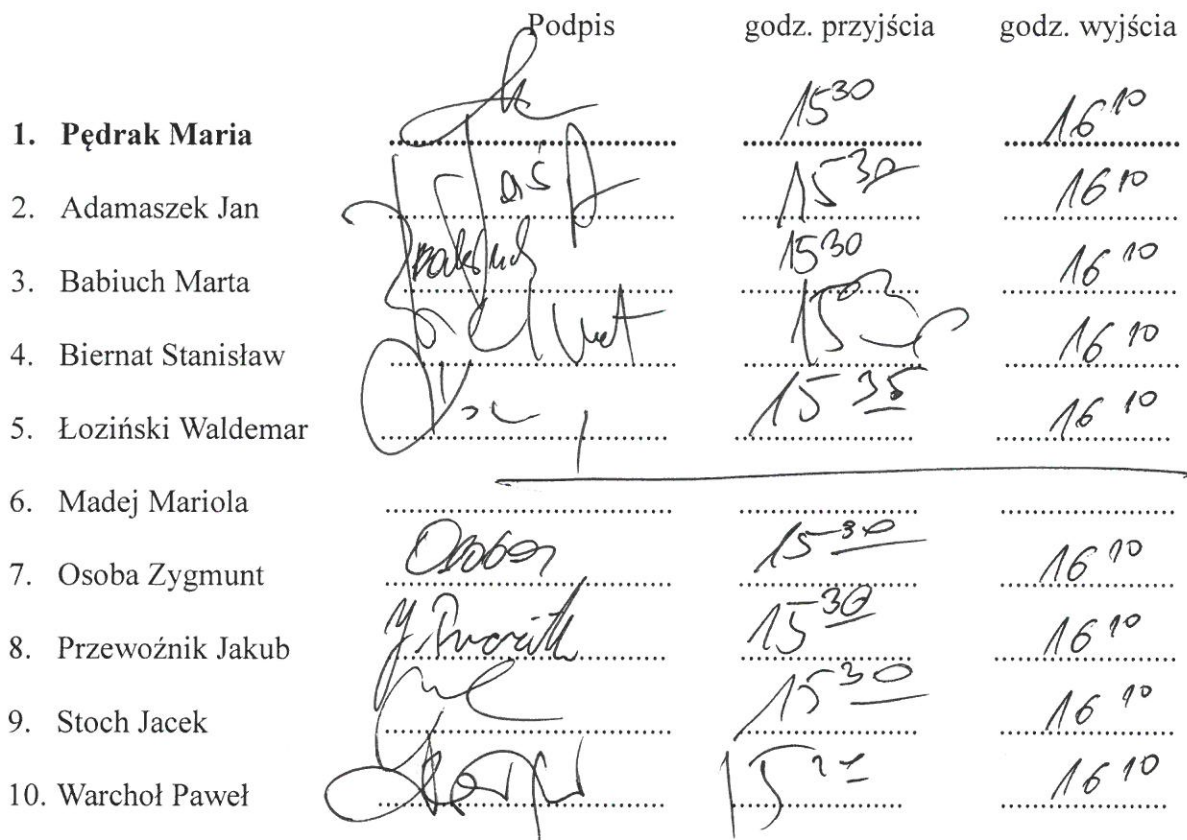 Podpis godz. przyjścia godz. wyjścia
1. Pędrak Maria 15³⁰ 16¹⁰
2. Adamaszek Jan 15³⁰ 16¹⁰
3. Babiuch Marta 15³⁰ 16¹⁰
4. Biernat Stanisław 16¹⁰
5. Łoziński Waldemar 15³⁵ 16¹⁰
6. Madej Mariola
7. Osoba Zygmunt 15³⁰ 16¹⁰
8. Przewoźnik Jakub 15³⁰ 16¹⁰
9. Stoch Jacek 15³⁰ 16¹⁰
10. Warchoł Paweł 16¹⁰